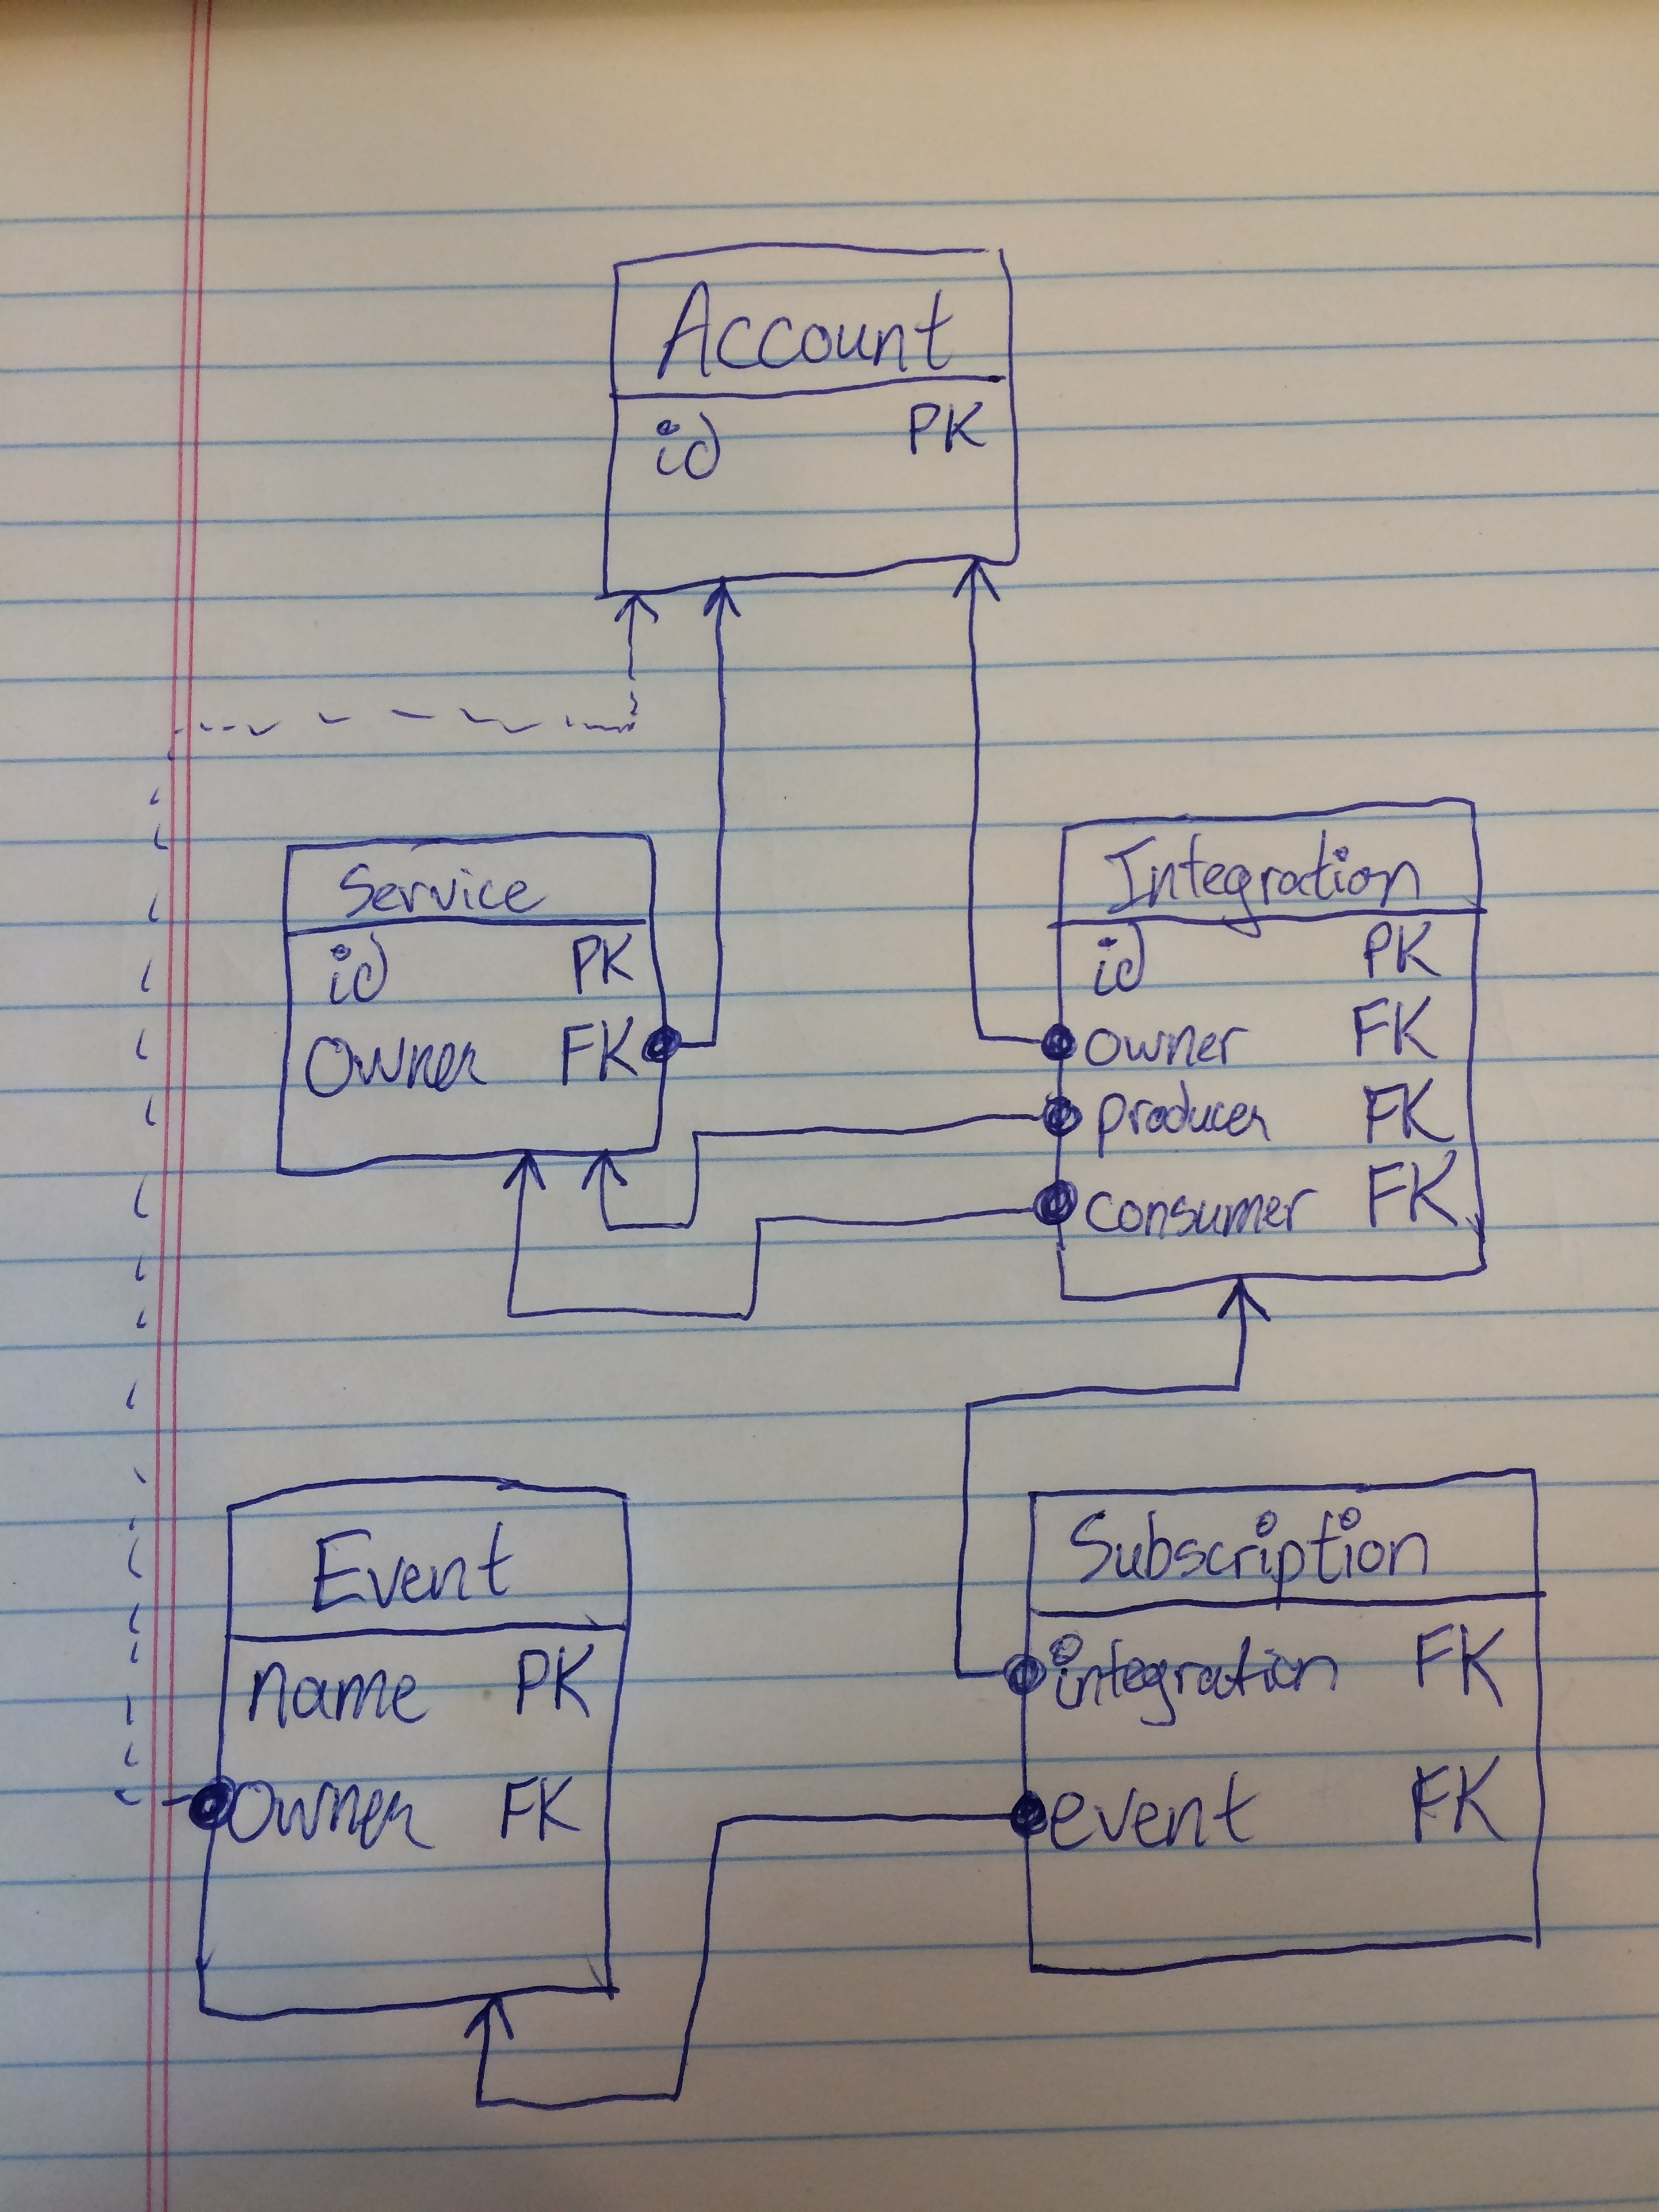 Account
id PK
Service
id PK
Owner FK
Integration
id PK
owner FK
producer FK
consumer FK
Event
name PK
Owner FK
Subscription
integration FK
event FK